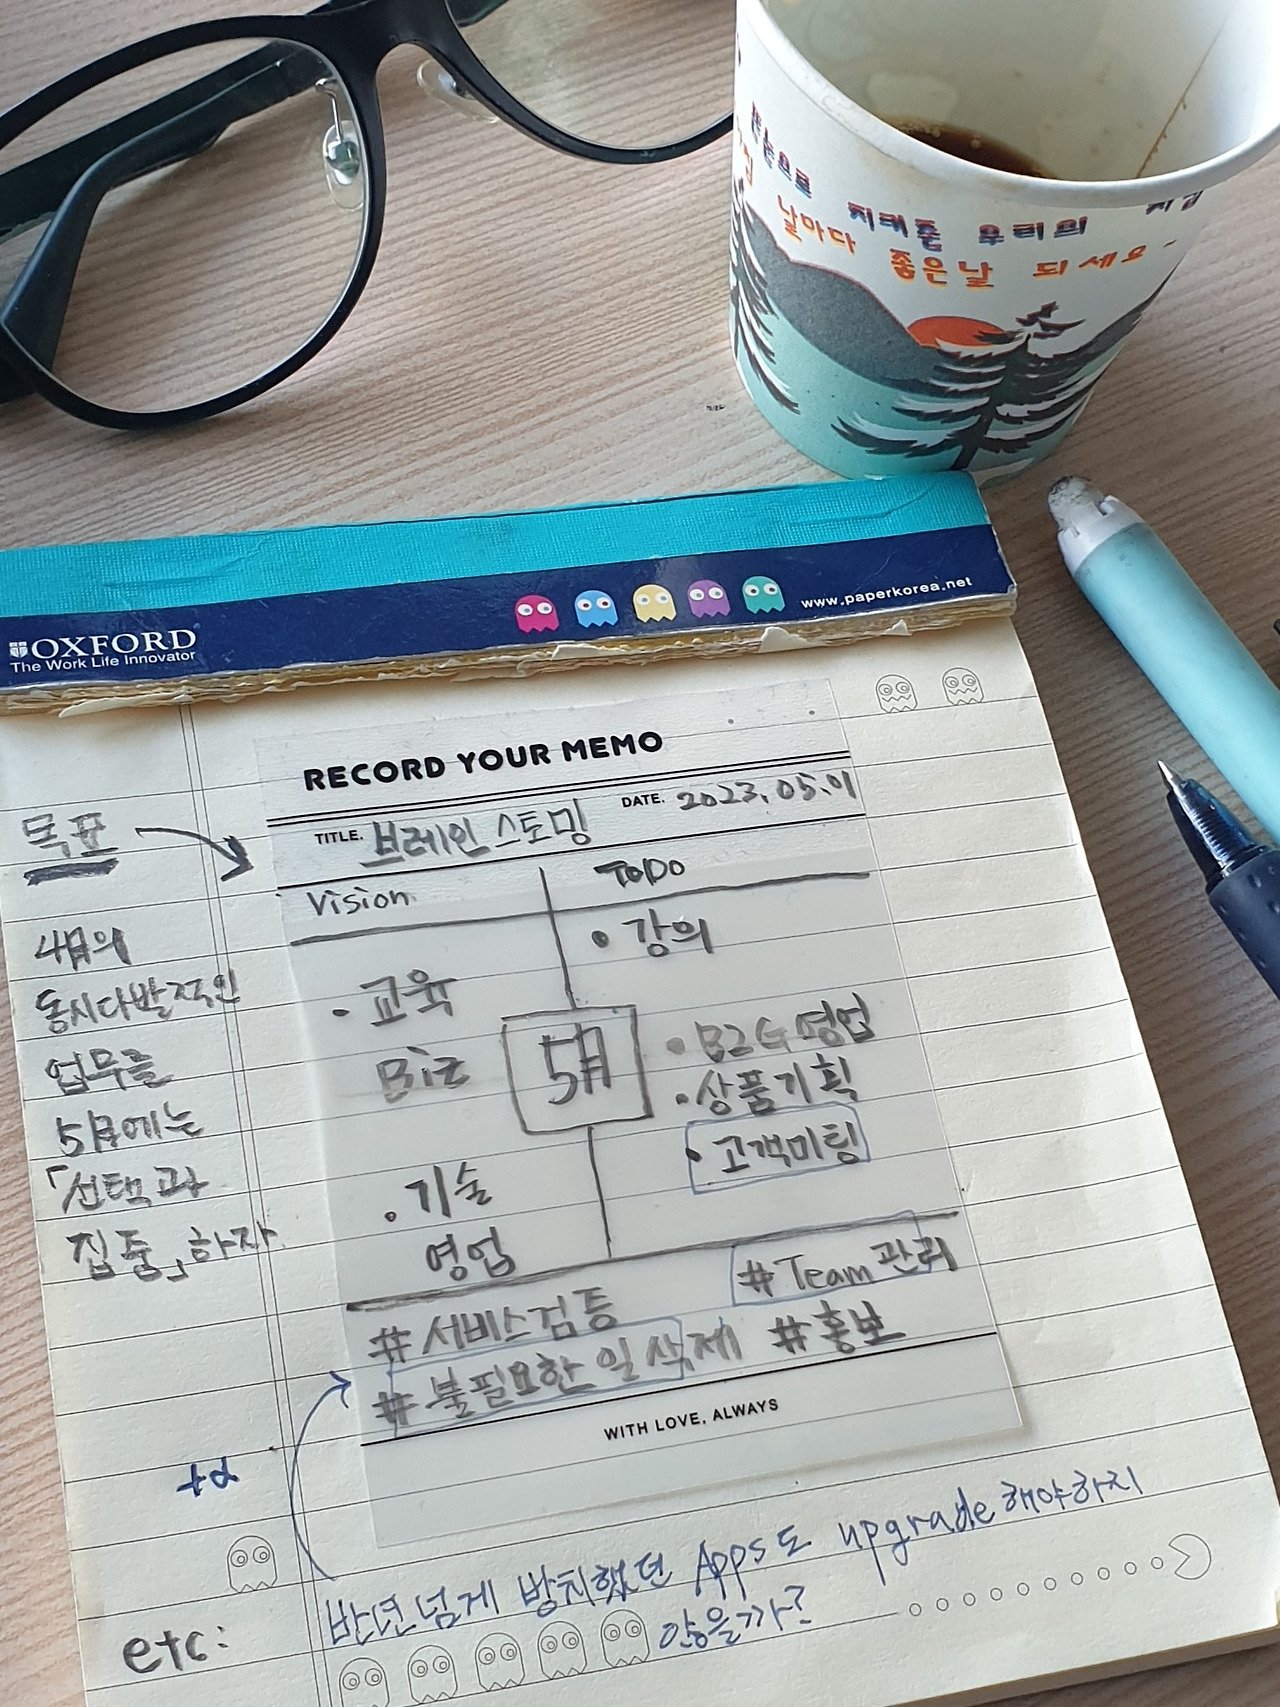 지켜줄 우리의
날마다 좋은날 되세요
OXFORD
The Work Life Innovator
www.paperkorea.net
RECORD YOUR MEMO
TITLE. 브레인 스토밍
DATE. 2023.05.01
목표
Vision
TODO
• 강의
• 교육
Biz
5月
• B2G영업
• 상품기획
• 고객미팅
• 기술
영업
4月의
동시다발적인
업무를
5月에는
「선택과
집중」하자
#Team 관리
#서비스검증
#불필요한 일 삭제 #홍보
WITH LOVE, ALWAYS
+α
반년넘게 방치했던 Apps도 upgrade해야하지
않을까?
etc: